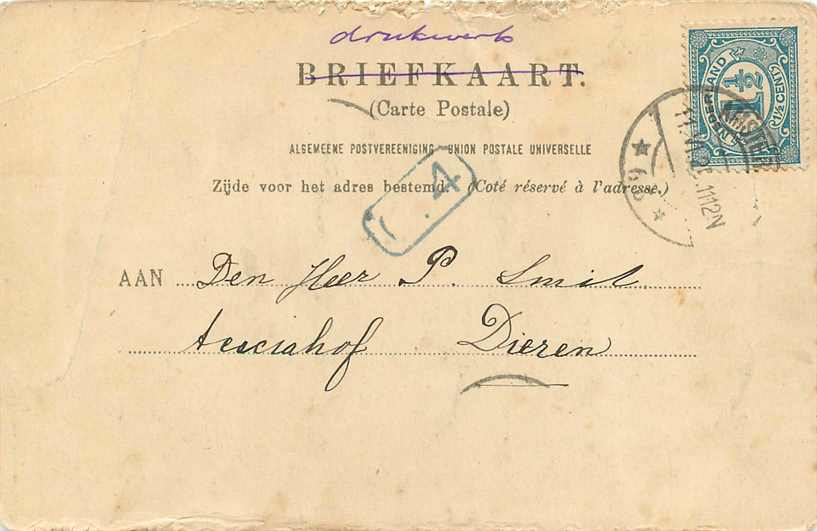 drukwerk
BRIEFKAART.
(Carte Postale)
ALGEMEENE POSTVEREENIGING UNION POSTALE UNIVERSELLE
Zijde voor het adres bestemd. (Coté réservé à l'adresse.)
4
AAN Den Heer P. Smit.
Acaciahof Dieren
NEDERLAND
1½
1½ CENT
AMSTE
1112N